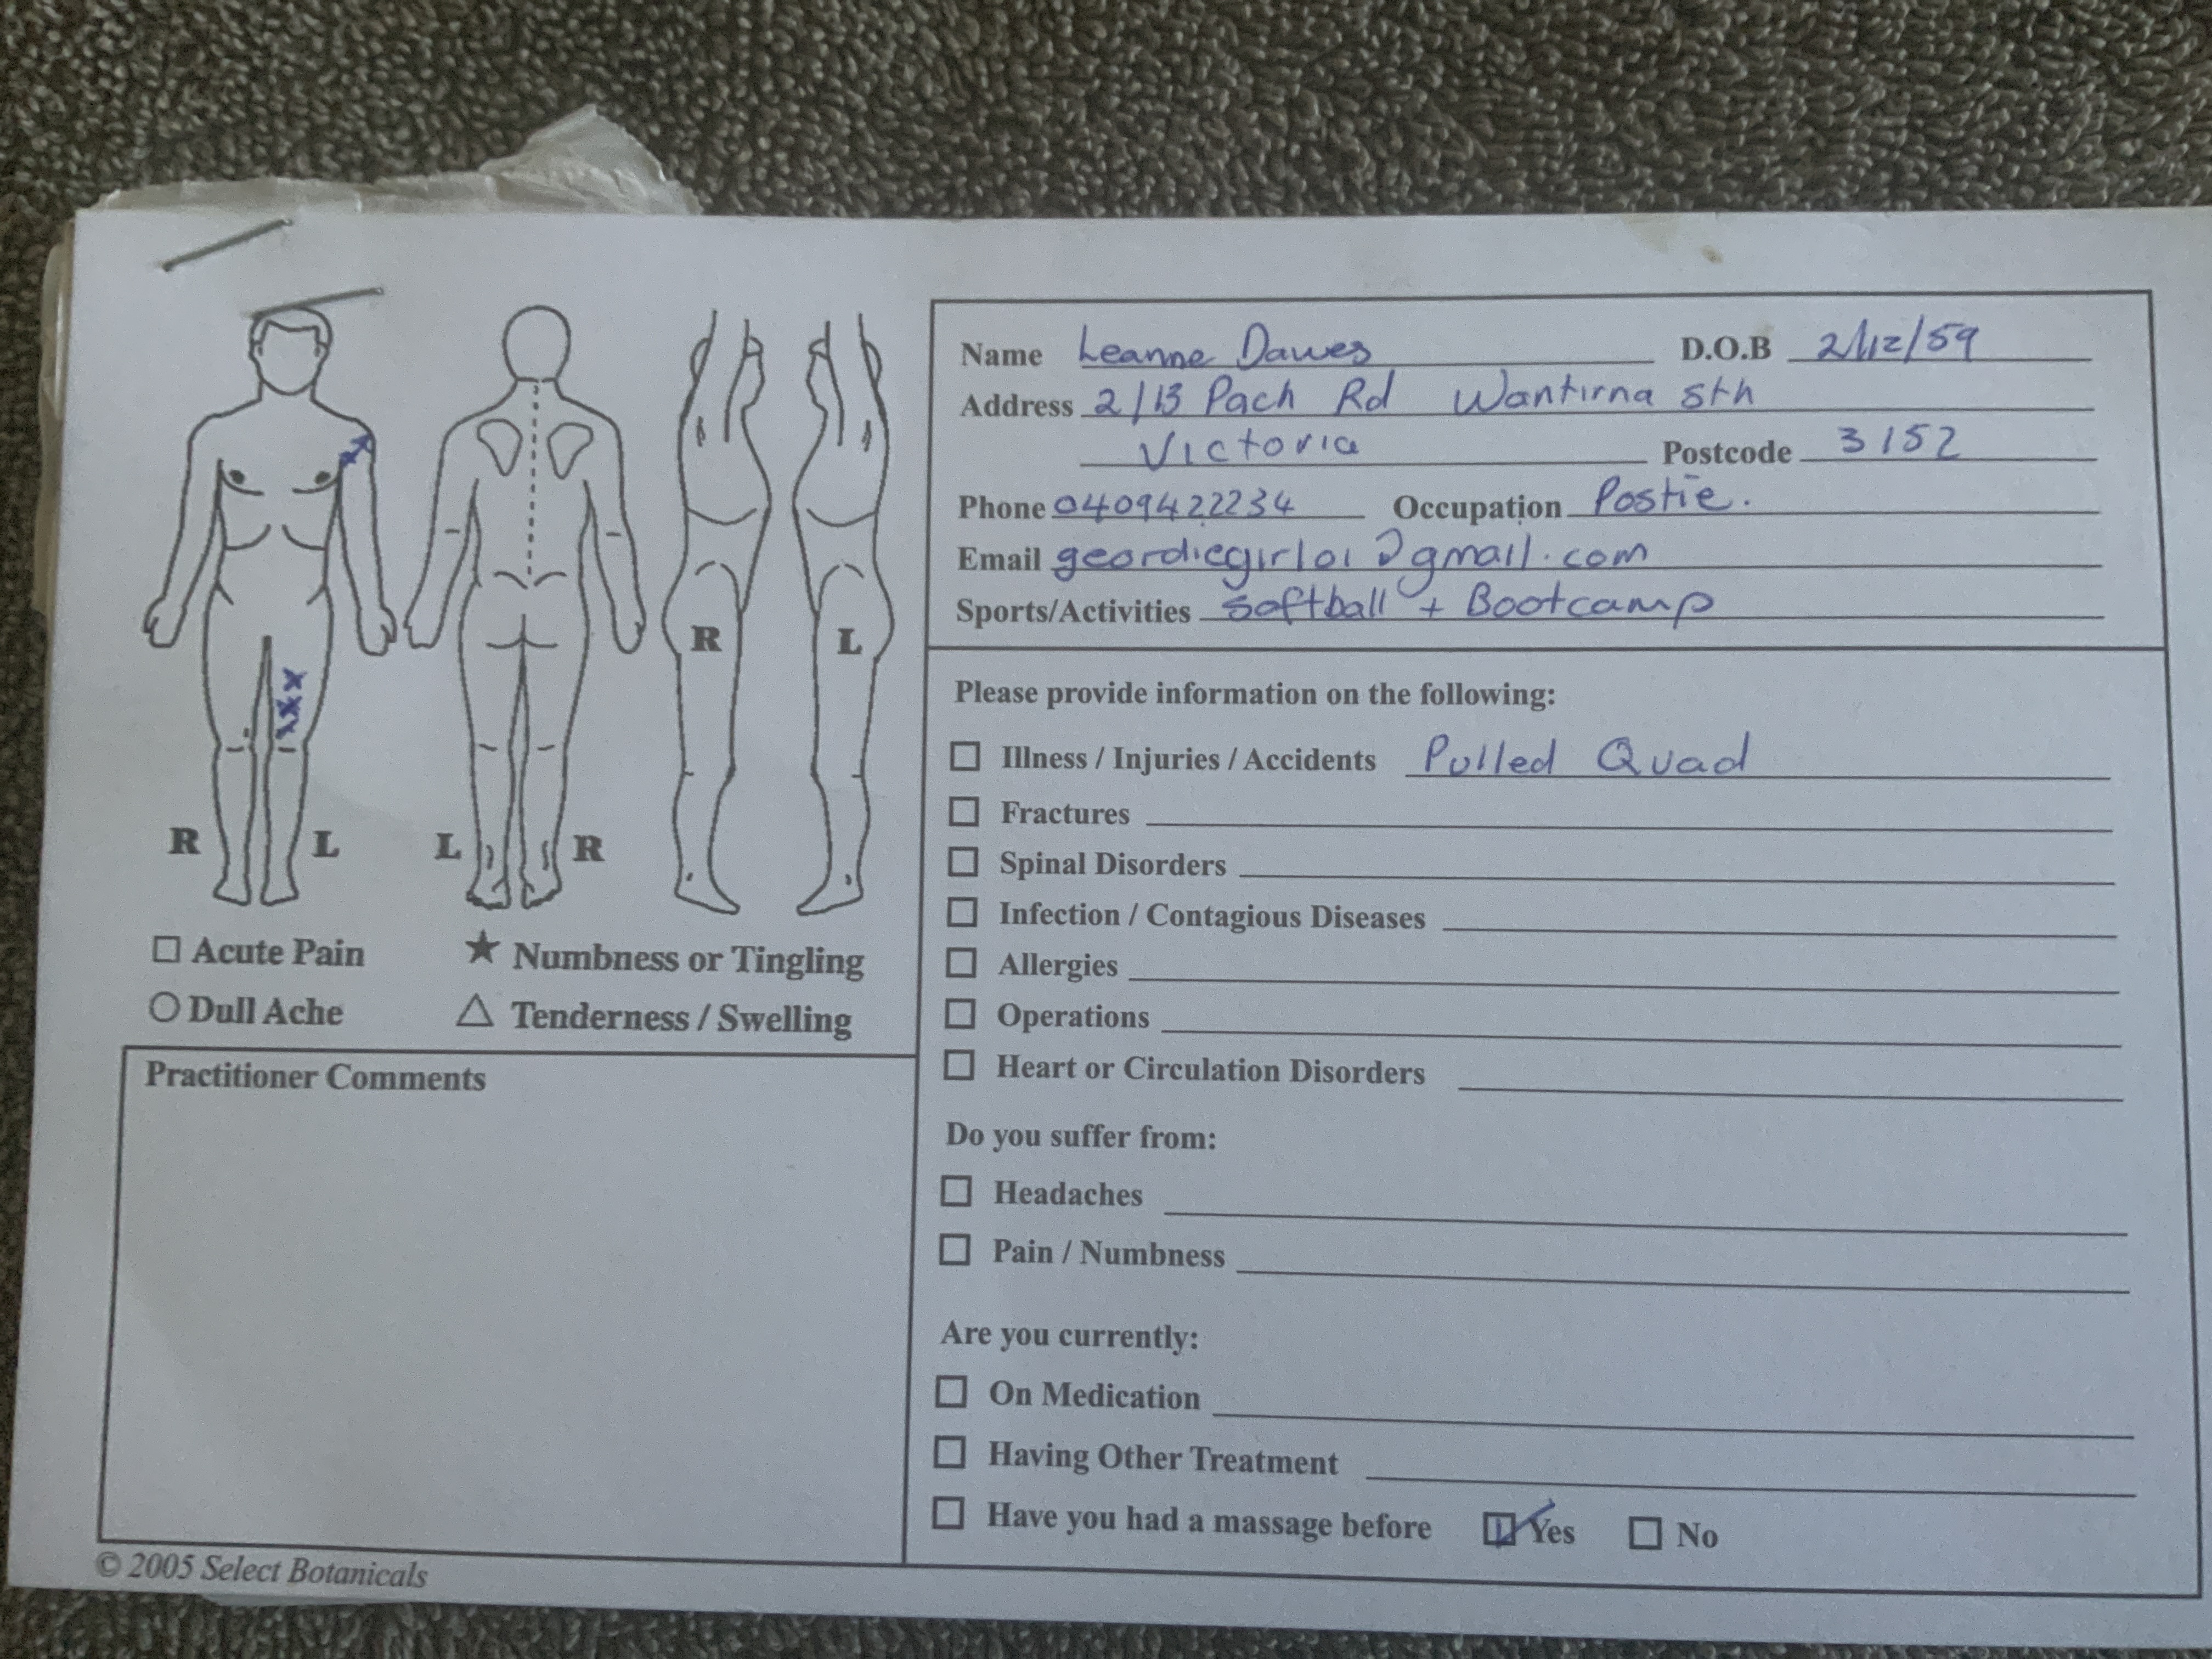 R L L R R L
☐ Acute Pain ★ Numbness or Tingling
○ Dull Ache △ Tenderness / Swelling
Practitioner Comments
© 2005 Select Botanicals
Name Leanne Dawes D.O.B 2/12/59
Address 2/13 Pach Rd Wantirna Sth
Victoria Postcode 3152
Phone 0409422234 Occupation Postie.
Email geordiegirl01@gmail.com
Sports/Activities Softball + Bootcamp
Please provide information on the following:
☐ Illness / Injuries / Accidents Pulled Quad
☐ Fractures
☐ Spinal Disorders
☐ Infection / Contagious Diseases
☐ Allergies
☐ Operations
☐ Heart or Circulation Disorders
Do you suffer from:
☐ Headaches
☐ Pain / Numbness
Are you currently:
☐ On Medication
☐ Having Other Treatment
☐ Have you had a massage before ☑ Yes ☐ No